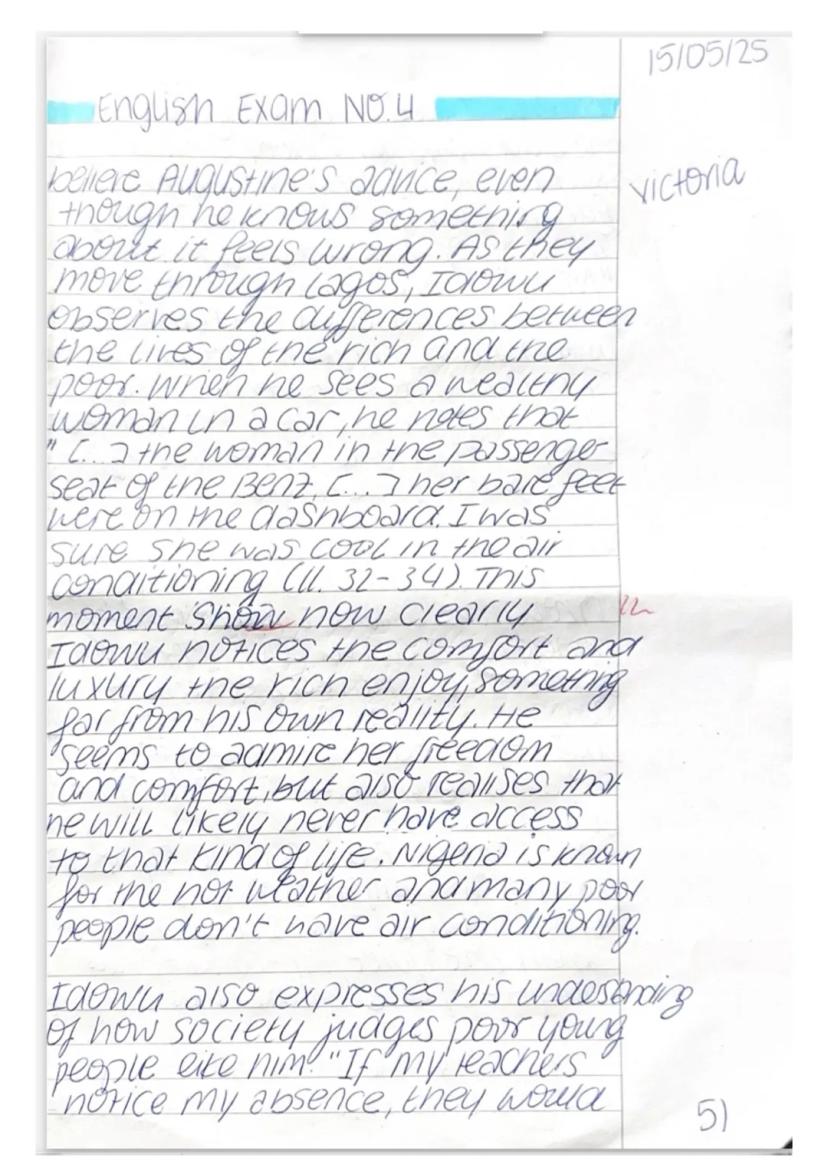 15/05/25
English Exam NO.4
Victoria
believe Augustine's advice, even
though he knows something
about it feels wrong. As they
move through Lagos, Idowu
observes the differences between
the lives of the rich and the
poor. When he sees a wealthy
woman in a car, he notes that
"[...] the woman in the passenger
seat of the Benz, [...] her bare feet
were on the dashboard. I was
sure she was cool in the air
conditioning (ll. 32-34). This
moment show how clearly
Idowu notices the comfort and
luxury the rich enjoy, something
far from his own reality. He
seems to admire her freedom
and comfort, but also realises that
he will likely never have access
to that kind of life. Nigeria is known
for the hot weather and many poor
people don't have air conditioning.
Idowu also expresses his undestanding
of how society judges poor young
people like him. "If my teachers
notice my absence, they would
5)